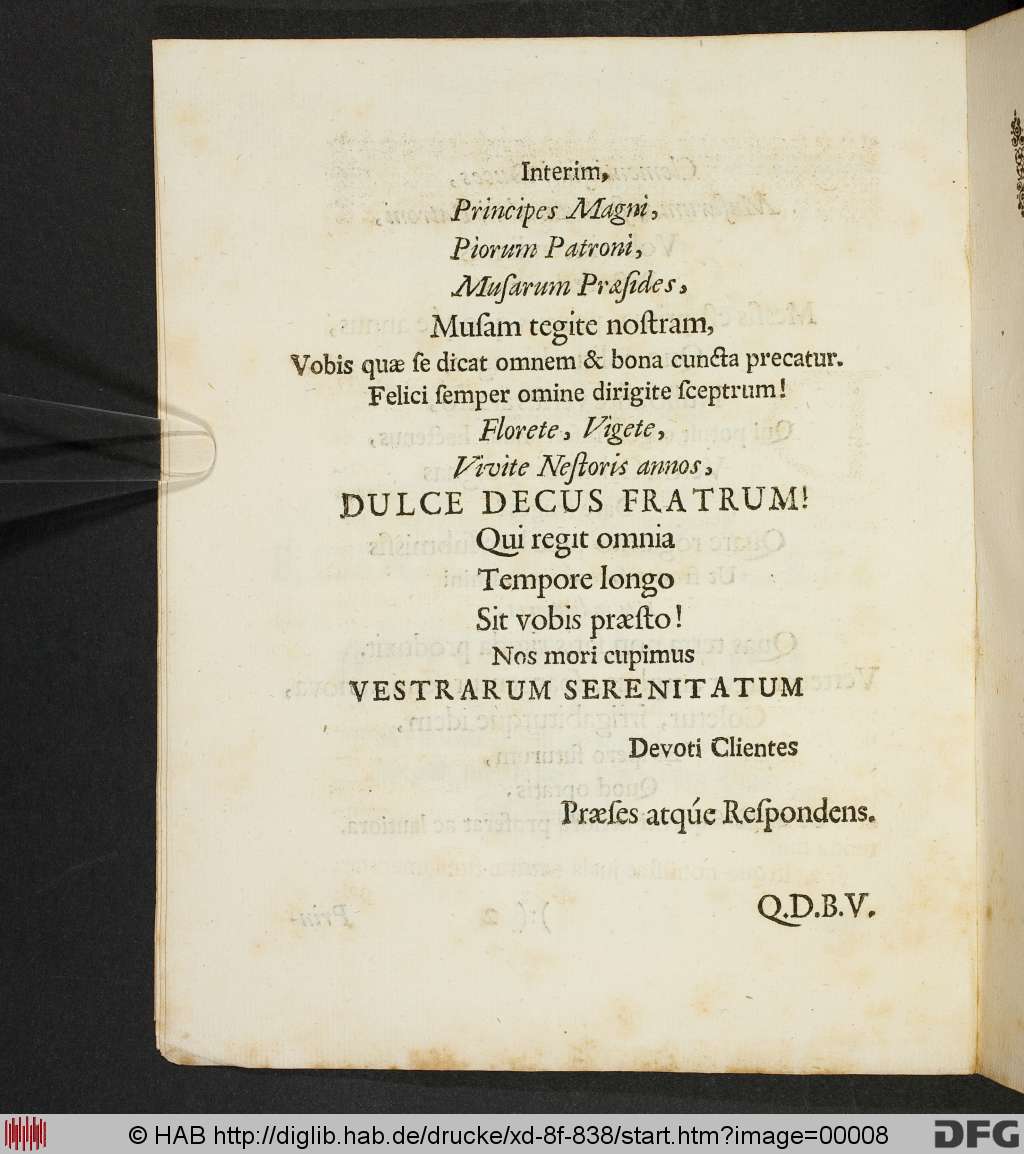 Interim,
Principes Magni,
Piorum Patroni,
Muſarum Præſides,
Muſam tegite noſtram,
Vobis quæ ſe dicat omnem & bona cuncta precatur.
Felici ſemper omine dirigite ſceptrum!
Florete, Vigete,
Vivite Neſtoris annos,
DULCE DECUS FRATRUM!
Qui regit omnia
Tempore longo
Sit vobis præſto!
Nos mori cupimus
VESTRARUM SERENITATUM
Devoti Clientes
Præſes atqúe Reſpondens.
Q.D.B.V.
© HAB http://diglib.hab.de/drucke/xd-8f-838/start.htm?image=00008
DFG